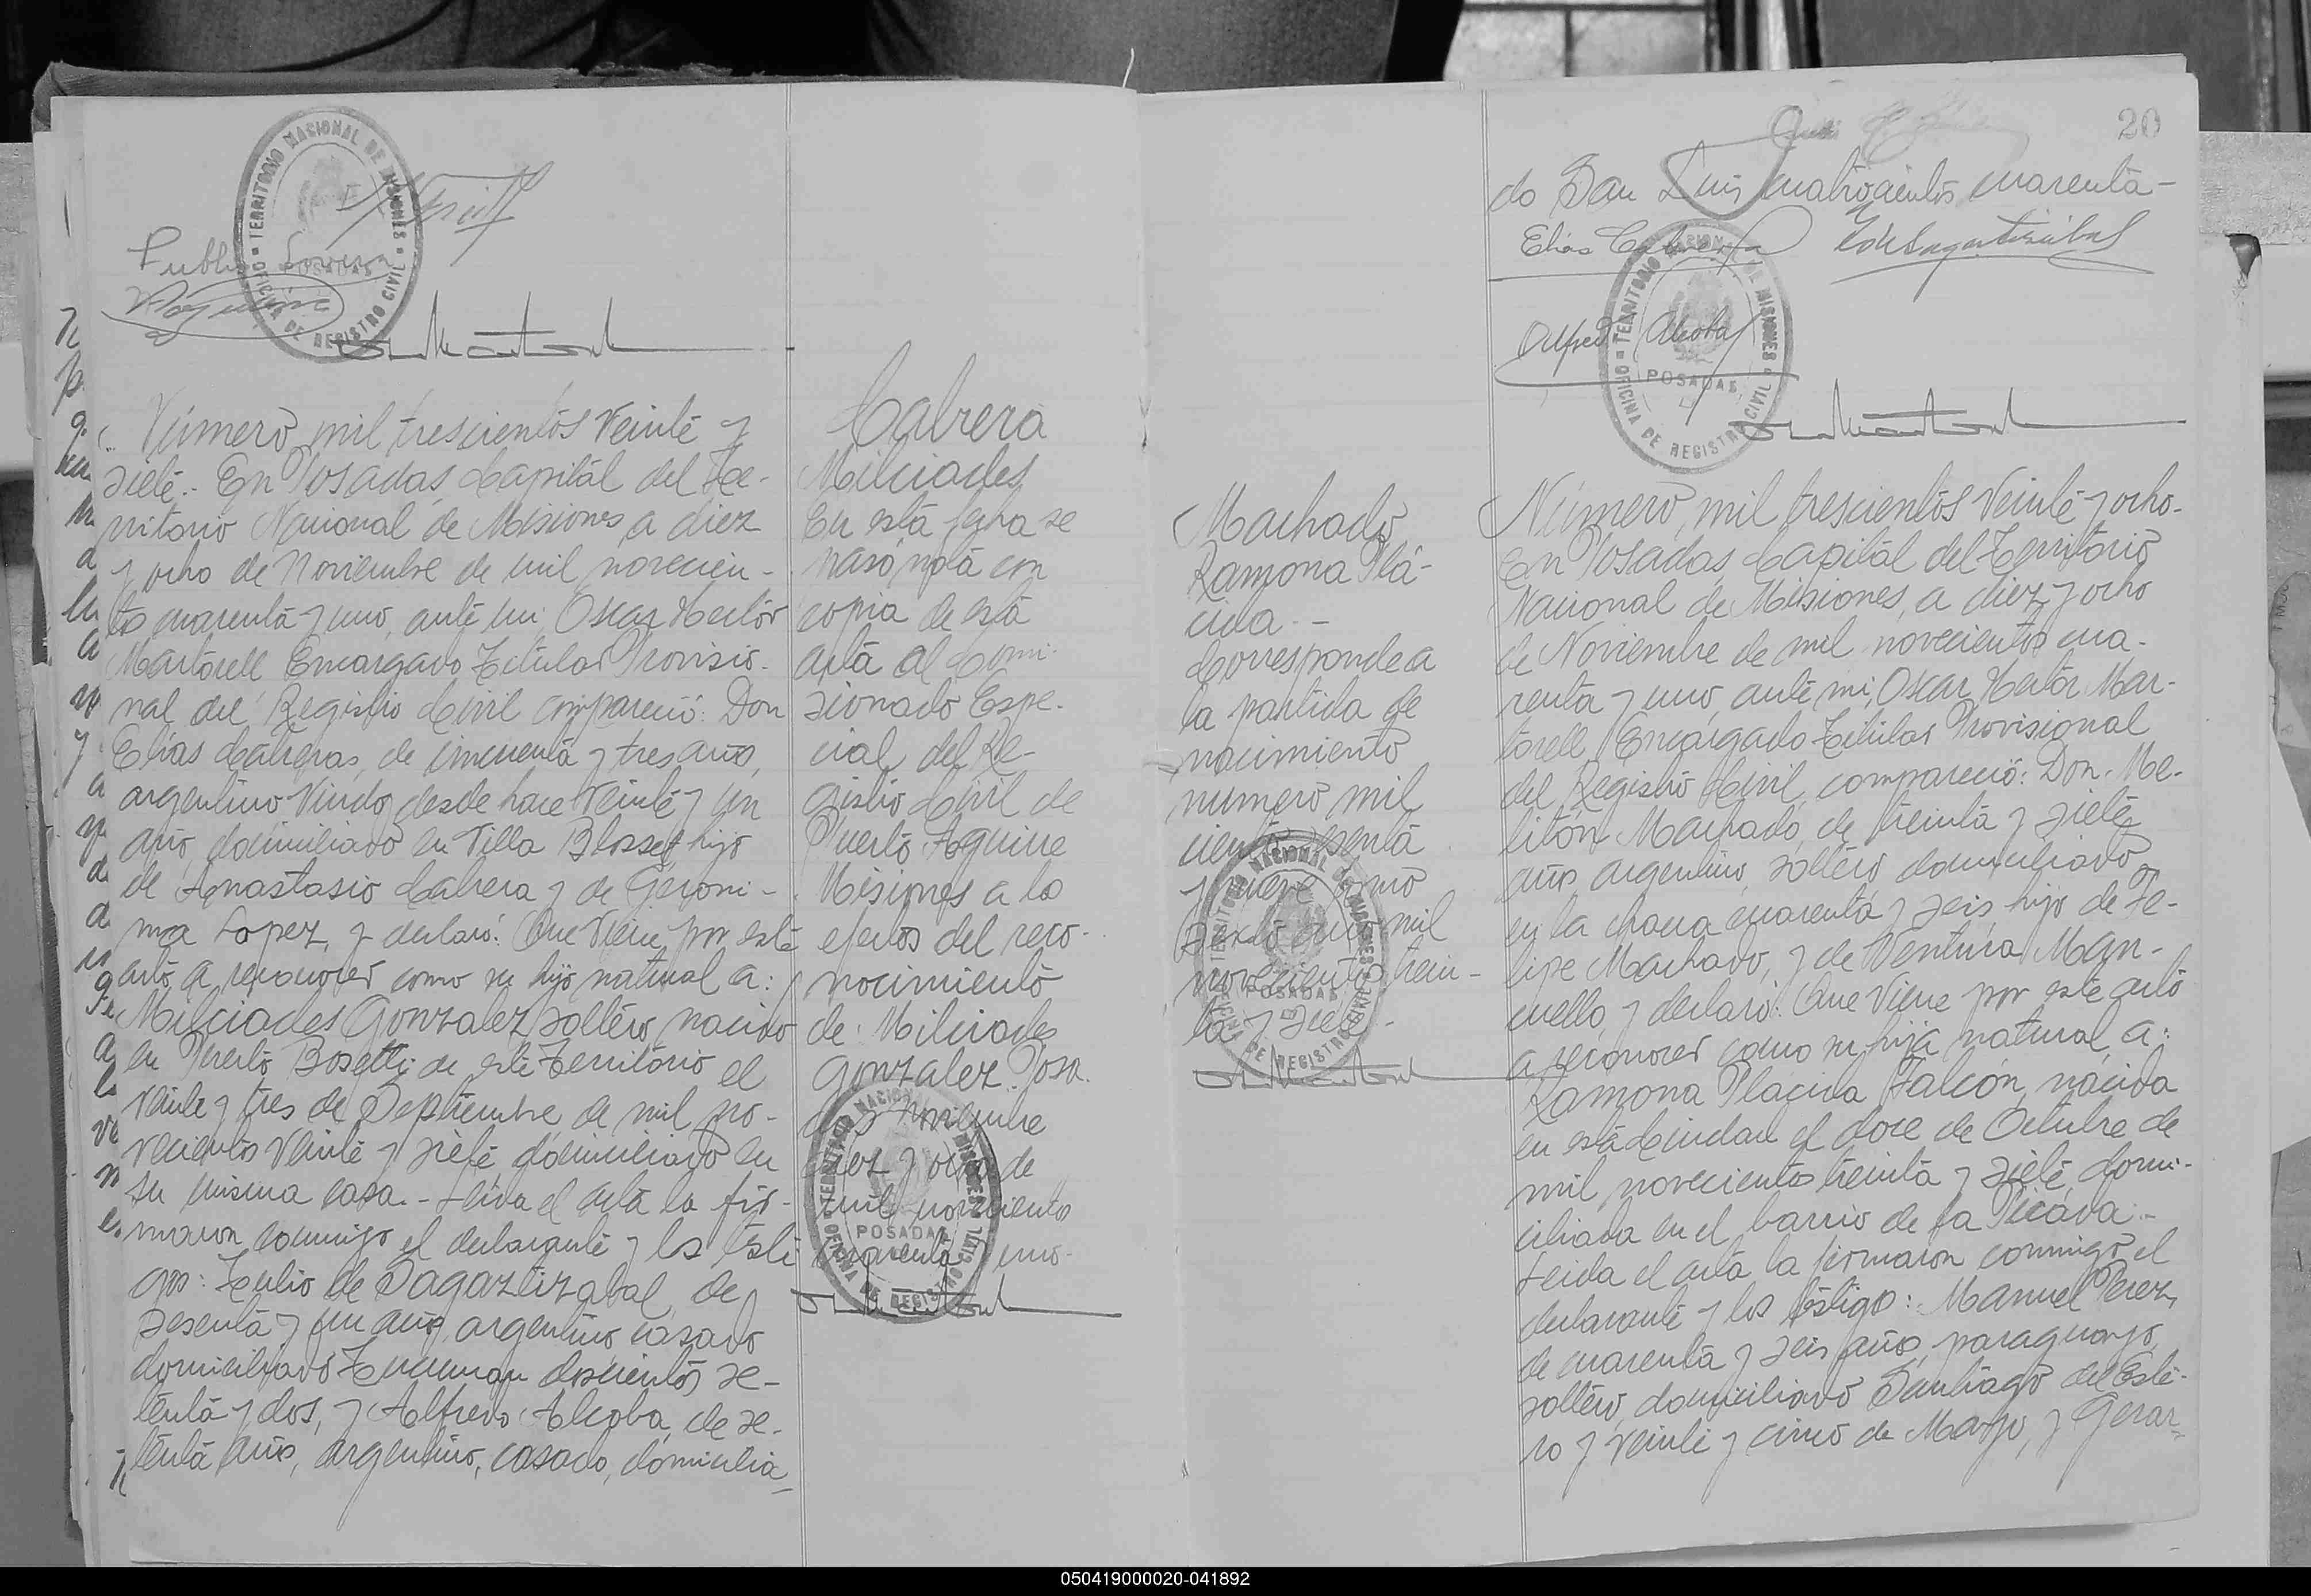 TERRITORIO NACIONAL DE MISIONES
POSADAS
OFICINA DE REGISTRO CIVIL
Número mil trescientos Veinte y
siete.- En Posadas, Capital del Te-
rritorio Nacional de Misiones, a diez
y ocho de Noviembre de mil novecien-
tos cuarenta y uno, ante mi Oscar Hector
Martorell Encargado Titular Provisio-
nal del Registro Civil compareció: Don
Elias Cabreras, de cincuenta y tres años,
argentino Viudo desde hace Veinte y un
año, domiciliado en Villa Blosset, hijo
de Anastasio Cabrera y de Geroni-
ma Lopez, y declaró: Que Viene por este
acto a reconocer como su hijo natural a:
Milciades Gonzalez soltero, nacido
en Puerto Bosetti de este Territorio el
veinte y tres de Septiembre de mil no-
vecientos Veinte y siete, domiciliado en
su misma casa.- Leida el acta la fir-
maron conmigo el declarante y los testi
gos: Julio de Sagaztizabal, de
sesenta y un años, argentino, casado
domiciliado Tucuman doscientos se-
tenta y dos, y Alfredo Alcoba, de se-
tenta años, argentino, casado, domicilia-
Cabrera
Milciades
En esta fecha se
pasó nota con
copia de esta
acta al Comi-
sionado Espe-
cial del Re-
gistro Civil de
Puerto Aguirre
Misiones a los
efectos del reco-
nocimiento
de Milciades
Gonzalez. Posa-
das Noviembre
diez y ocho de
mil novecientos
cuarenta y uno.
TERRITORIO NACIONAL DE MISIONES
POSADAS
OFICINA DE REGISTRO CIVIL
20
do San Luis cuatrocientos cuarenta-
Elias Cabrera
Alfredo Alcoba
TERRITORIO NACIONAL DE MISIONES
POSADAS
OFICINA DE REGISTRO CIVIL
Machado
Ramona Plá-
cida.-
Corresponde a
la partida de
nacimiento
numero mil
ciento sesenta
y nueve tomo
mil
novecientos trein-
ta y siete.-
TERRITORIO NACIONAL DE MISIONES
POSADAS
OFICINA DE REGISTRO CIVIL
Número, mil trescientos Veinte y ocho.
En Posadas, Capital del Territorio
Nacional de Misiones, a diez y ocho
de Noviembre de mil novecientos cua-
renta y uno, ante mi, Oscar Hector Mar-
torell Encargado Titular Provisional
del Registro Civil, compareció: Don. Me-
litón Machado, de treinta y siete
años, argentino, soltero, domiciliado
en la chacra cuarenta y seis, hijo de Fe-
lipe Machado, y de Ventura Man-
cuello, y declaró: Que Viene por este acto
a reconocer como su hija natural, a:
Ramona Placida Falcón, nacida
en esta Ciudad el doce de Octubre de
mil novecientos treinta y siete, domi-
ciliada en el barrio de la Picada.-
Leida el acta la firmaron conmigo el
declarante y los testigos: Manuel Perez,
de cuarenta y seis años, paraguayo,
soltero, domiciliado Santiago del Este-
ro y Veinte y cinco de Mayo, y Gerar-
050419000020-041892